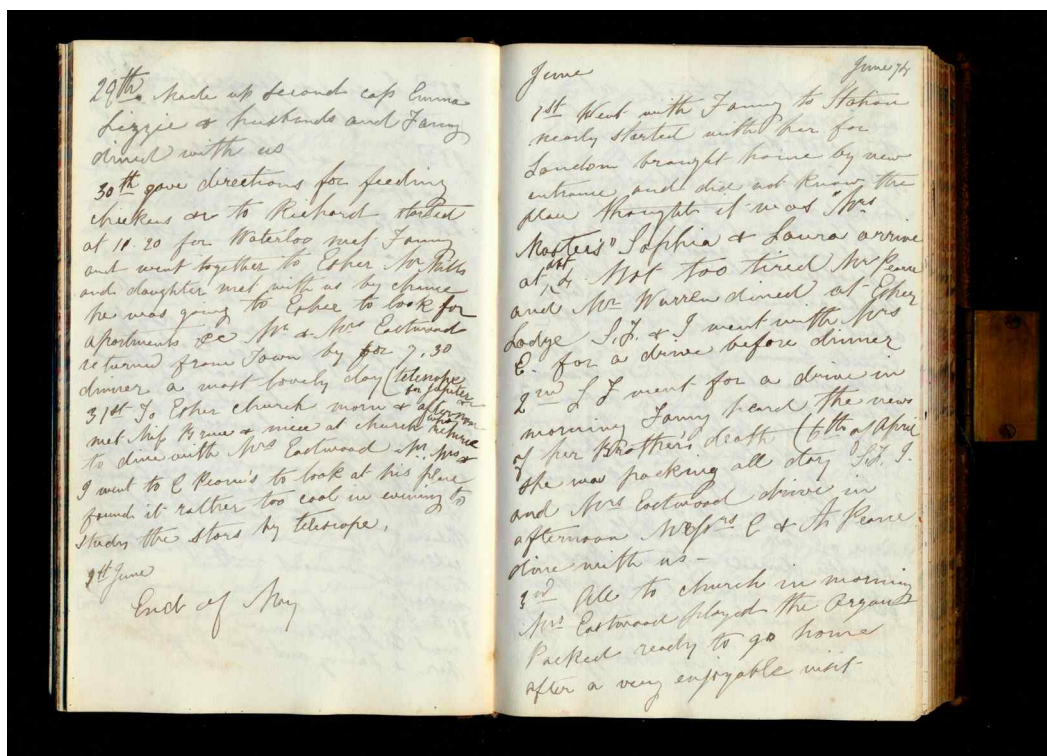 29th. Made up second cap Emma
Lizzie & husbands and Fanny
dined with us
30th gave directions for feeding
chickens &c to Richard started
at 10.20 for Waterloo met Fanny
and went together to Esher Mr
and daughter met with us by chance
he was going to Esher to look for
apartments &c Mr & Mrs Eastwood
returned from Town by for 7.30
dinner a most lovely day (telescope
for Jupiter
31st To Esher church morn & afternoon
met Miss & niece at church who
to dine with Mrs Eastwood Mr. Mrs &
I went to C Pearie's to look at his place
found it rather too cool in evening to
study the stars by telescope.
June
End of May
June
June 74
1st Went with Fanny to Station
nearly started with her for
London brought home by new
entrance and did not know the
place thought it was "Mrs
Master's" Sophia & Laura arrive
at Not too tired Mr
and Mr Warren dined at Esher
Lodge S.L. & I went with Mrs
E. for a drive before dinner
2nd S L went for a drive in
morning Fanny heard the news
of her Brother's death (6th of April
She was packing all day S.L. I.
and Mrs Eastwood drive in
afternoon C &
dine with us -
3rd All to church in morning
Mrs Eastwood played the Organ
Packed ready to go home
after a very enjoyable visit